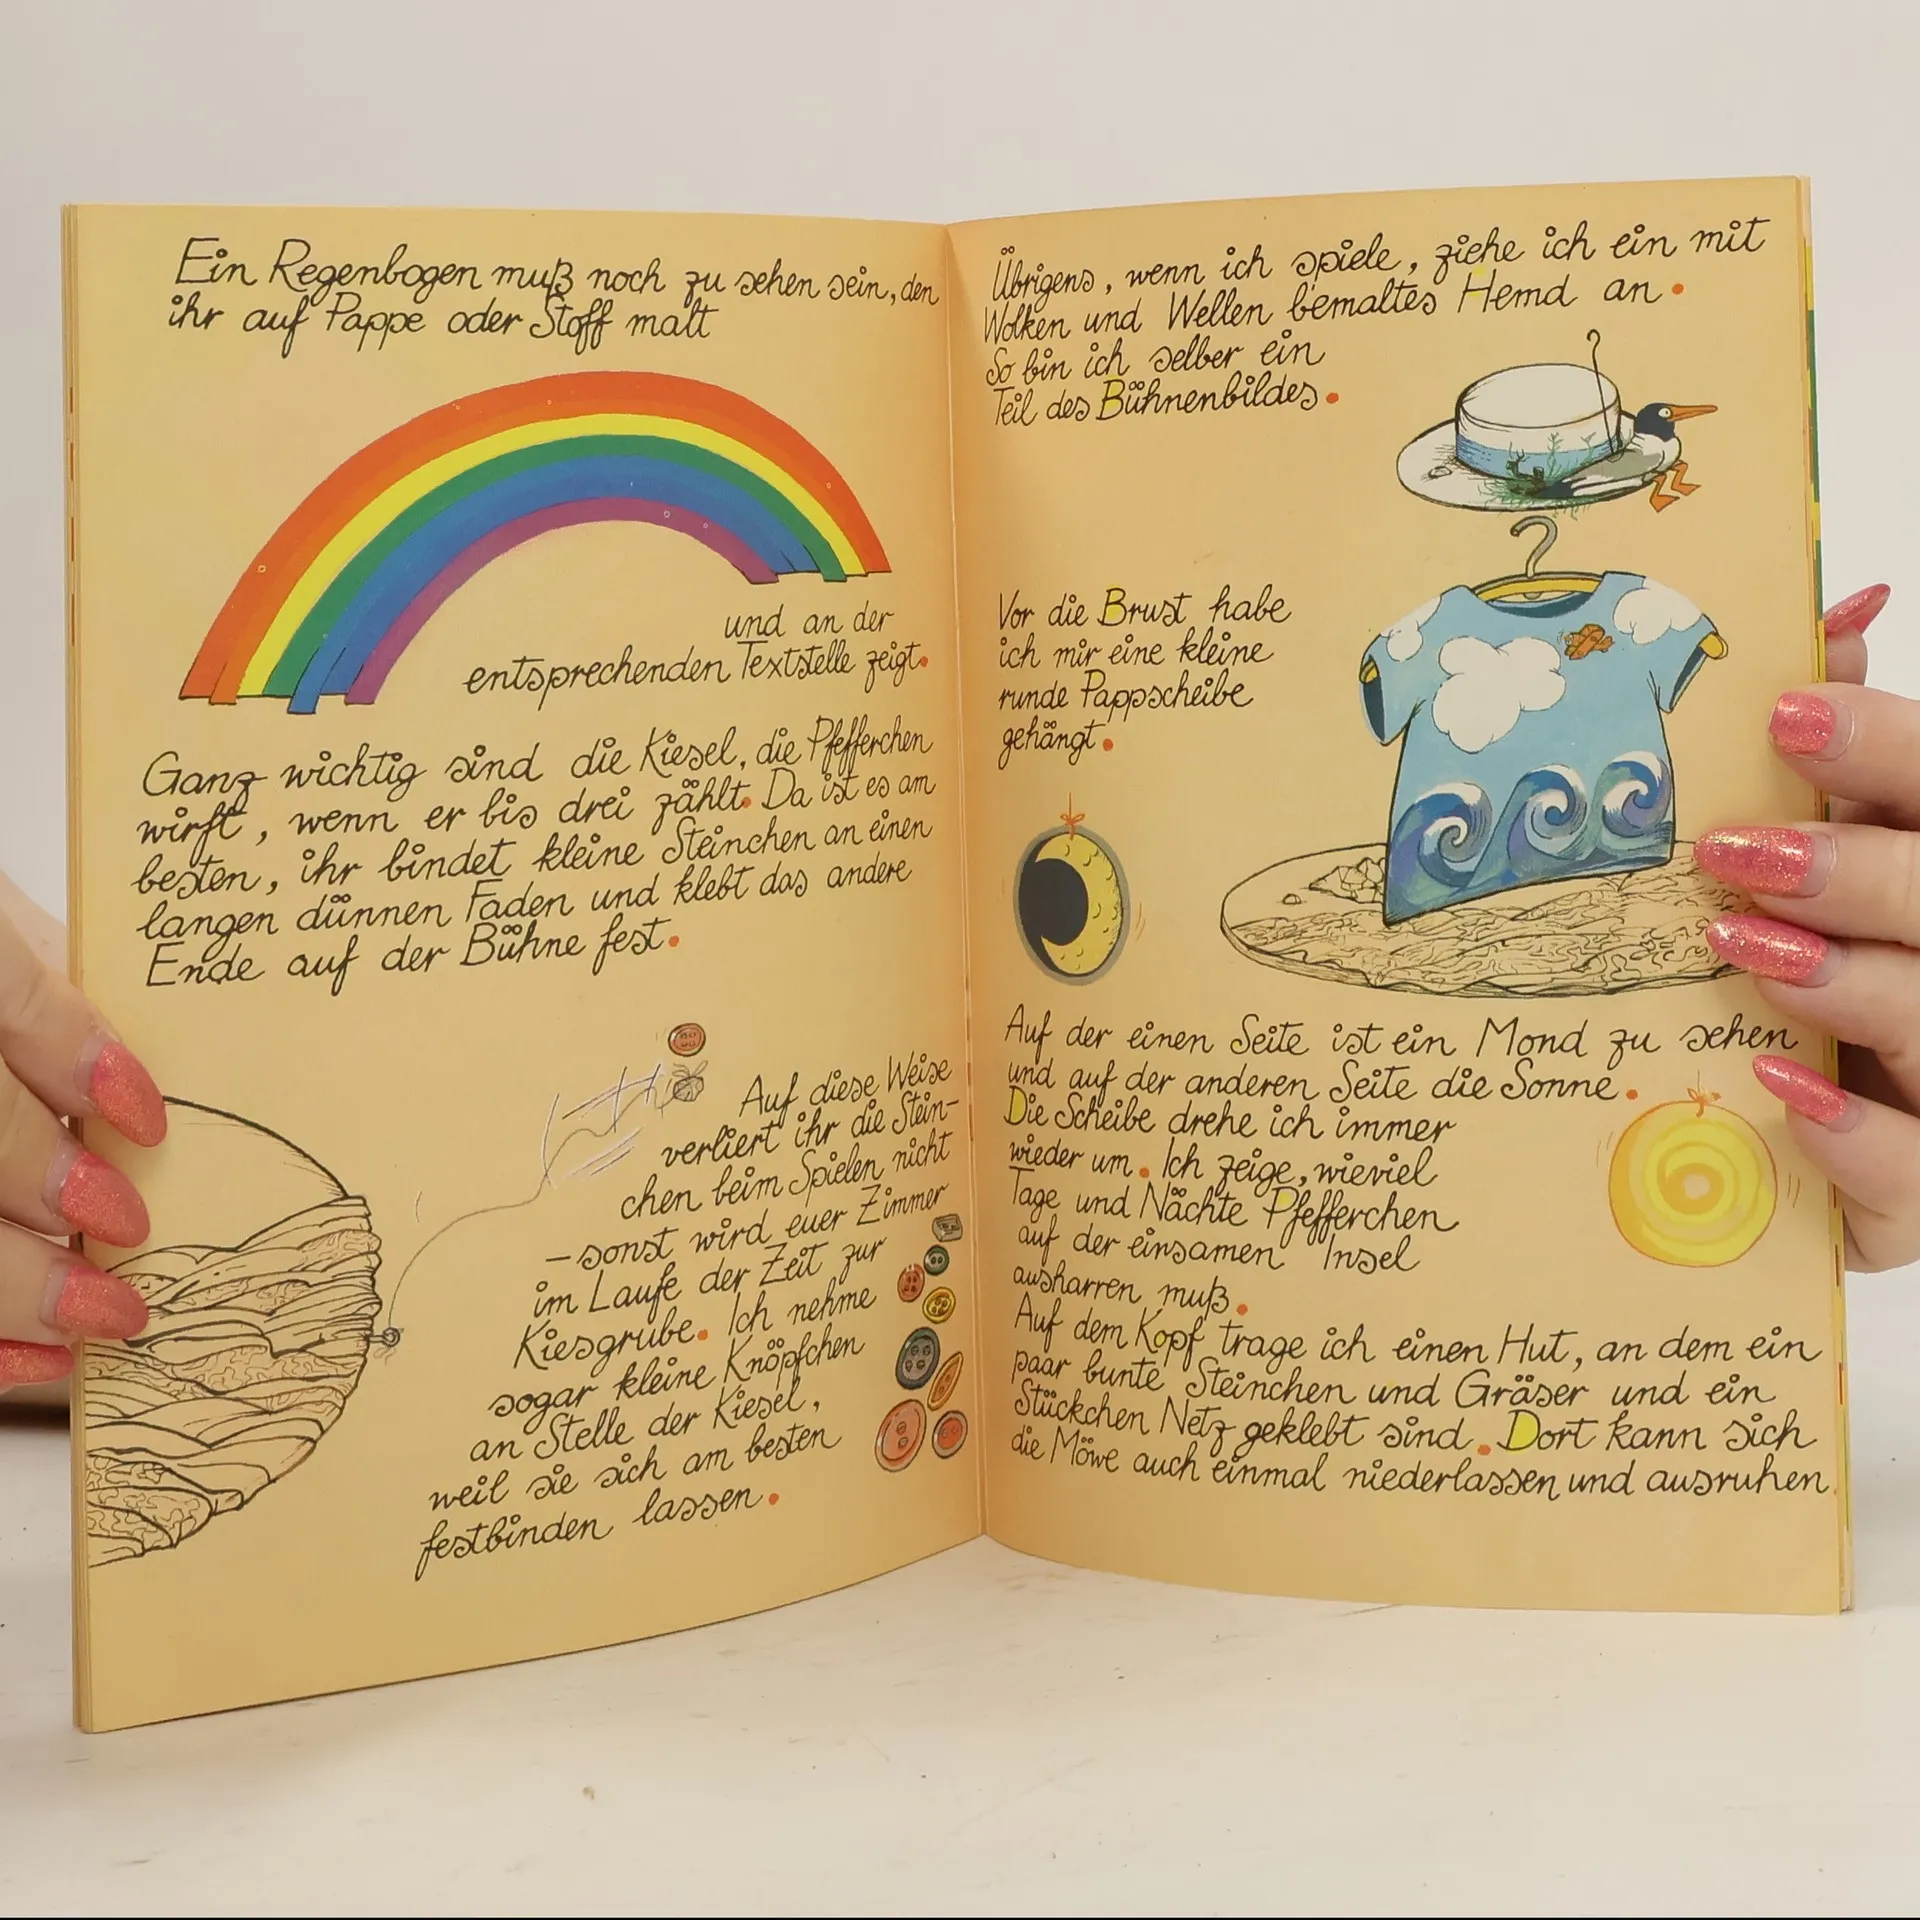 Ein Regenbogen muß noch zu sehen sein, den
ihr auf Pappe oder Stoff malt
und an der
entsprechenden Textstelle zeigt.
Ganz wichtig sind die Kiesel, die Pfefferchen
wirft, wenn er bis drei zählt. Da ist es am
besten, ihr bindet kleine Steinchen an einen
langen dünnen Faden und klebt das andere
Ende auf der Bühne fest.
Auf diese Weise
verliert ihr die Stein-
chen beim Spielen nicht
– sonst wird euer Zimmer
im Laufe der Zeit zur
Kiesgrube. Ich nehme
sogar kleine Knöpfchen
an Stelle der Kiesel,
weil sie sich am besten
festbinden lassen.
Übrigens, wenn ich spiele, ziehe ich ein mit
Wolken und Wellen bemaltes Hemd an.
So bin ich selber ein
Teil des Bühnenbildes.
Vor die Brust habe
ich mir eine kleine
runde Pappscheibe
gehängt.
Auf der einen Seite ist ein Mond zu sehen
und auf der anderen Seite die Sonne.
Die Scheibe drehe ich immer
wieder um. Ich zeige, wieviel
Tage und Nächte Pfefferchen
auf der einsamen Insel
ausharren muß.
Auf dem Kopf trage ich einen Hut, an dem ein
paar bunte Steinchen und Gräser und ein
Stückchen Netz geklebt sind. Dort kann sich
die Möwe auch einmal niederlassen und ausruhen.